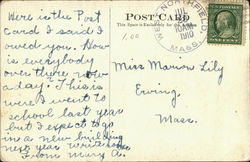 Here is the Post
Card I said I
owed you. How
is everybody
over there now
a day. This is
were I went to
school last year
but I expect to go
in a new building
next year
From Mary A.
POST CARD
This Space
NORTHFIELD,
MASS.
1910
1.00
Miss Marion Lily
Erving,
Mass.